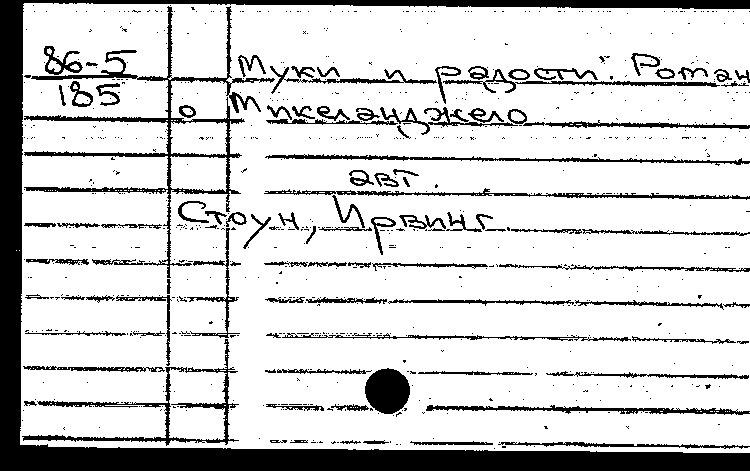 86-5 Муки и радости". Роман
185 о Микеланджело
авт.
Стоун, Ирвинг.